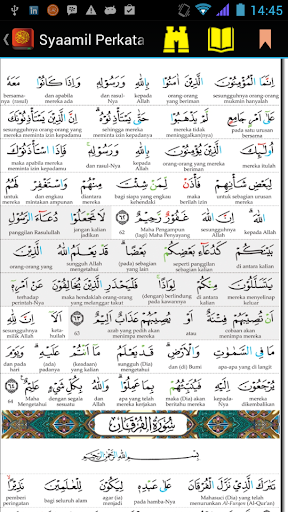 14:45
Syaamil Perkata
إِنَّمَا الْمُؤْمِنُونَ الَّذِينَ آمَنُوا بِاللَّهِ وَرَسُولِهِ وَإِذَا كَانُوا مَعَهُ
bersama-(nya) dan apabila mereka ada dan rasul-Nya kepada Allah orang-orang yang beriman sesungguhnya orang-orang mukmin hanyalah
عَلَىٰ أَمْرٍ جَامِعٍ لَمْ يَذْهَبُوا حَتَّىٰ يَسْتَأْذِنُوهُ إِنَّ الَّذِينَ يَسْتَأْذِنُونَكَ
sesungguhnya orang-orang yang meminta izin kepadamu sehingga mereka minta izin kepadanya mereka tidak meninggalkan(nya) pada satu urusan bersama
أُولَٰئِكَ الَّذِينَ يُؤْمِنُونَ بِاللَّهِ وَرَسُولِهِ فَإِذَا اسْتَأْذَنُوكَ
maka apabila mereka meminta izin kepadamu dan rasul-Nya kepada Allah orang-orang yang mereka beriman mereka itulah
لِبَعْضِ شَأْنِهِمْ فَأْذَنْ لِمَنْ شِئْتَ مِنْهُمْ وَاسْتَغْفِرْ لَهُمُ
untuk mereka dan mohonkan ampunan di antara mereka bagi siapa yang kamu kehendaki maka berilah izin untuk sebagian urusan mereka
اللَّهَ إِنَّ اللَّهَ غَفُورٌ رَحِيمٌ ٦٢ لَا تَجْعَلُوا دُعَاءَ الرَّسُولِ
panggilan Rasulullah jangan kalian jadikan 62 Maha Pengampun (lagi) Maha Penyayang sesungguhnya Allah (kepada) Allah
بَيْنَكُمْ كَدُعَاءِ بَعْضِكُمْ بَعْضًا قَدْ يَعْلَمُ اللَّهُ الَّذِينَ
orang-orang yang sungguh Allah mengetahui (pada) sebagian yang lain seperti panggilan sebagian kalian di antara kalian
يَتَسَلَّلُونَ مِنْكُمْ لِوَاذًا فَلْيَحْذَرِ الَّذِينَ يُخَالِفُونَ عَنْ أَمْرِهِ
terhadap perintah-Nya maka hendaklah orang-orang yang melanggar takut (dengan) berlindung (pada kawannya) di antara kalian mereka menyelinap keluar
أَنْ تُصِيبَهُمْ فِتْنَةٌ أَوْ يُصِيبَهُمْ عَذَابٌ أَلِيمٌ ٦٣ أَلَا إِنَّ لِلَّهِ
sesungguhnya milik Allah keta-huilah 63 azab yang pedih atau menimpa mereka cobaan akan menimpa mereka
مَا فِي السَّمَاوَاتِ وَالْأَرْضِ قَدْ يَعْلَمُ مَا أَنْتُمْ عَلَيْهِ وَيَوْمَ
dan pada hari di atasnya (keadaan) yang kalian sungguh Dia mengetahui dan (di) Bumi apa-apa yang di langit
يُرْجَعُونَ إِلَيْهِ فَيُنَبِّئُهُمْ بِمَا عَمِلُوا وَاللَّهُ بِكُلِّ شَيْءٍ عَلِيمٌ ٦٤
64 Maha Mengetahui dengan segala sesuatu dan Allah apa yang telah mereka kerjakan lalu Dia akan beritahukan mereka kepada-Nya mereka dikembalikan
سُورَةُ الْفُرْقَانِ
بِسْمِ اللَّهِ الرَّحْمَٰنِ الرَّحِيمِ
تَبَارَكَ الَّذِي نَزَّلَ الْفُرْقَانَ عَلَىٰ عَبْدِهِ لِيَكُونَ لِلْعَالَمِينَ نَذِيرًا
pemberi peringatan bagi seluruh alam agar ia (menjadi) pada hamba-Nya Mahasuci (Dia) yang telah menurunkan Al-Furqan (Al-Qur'an)